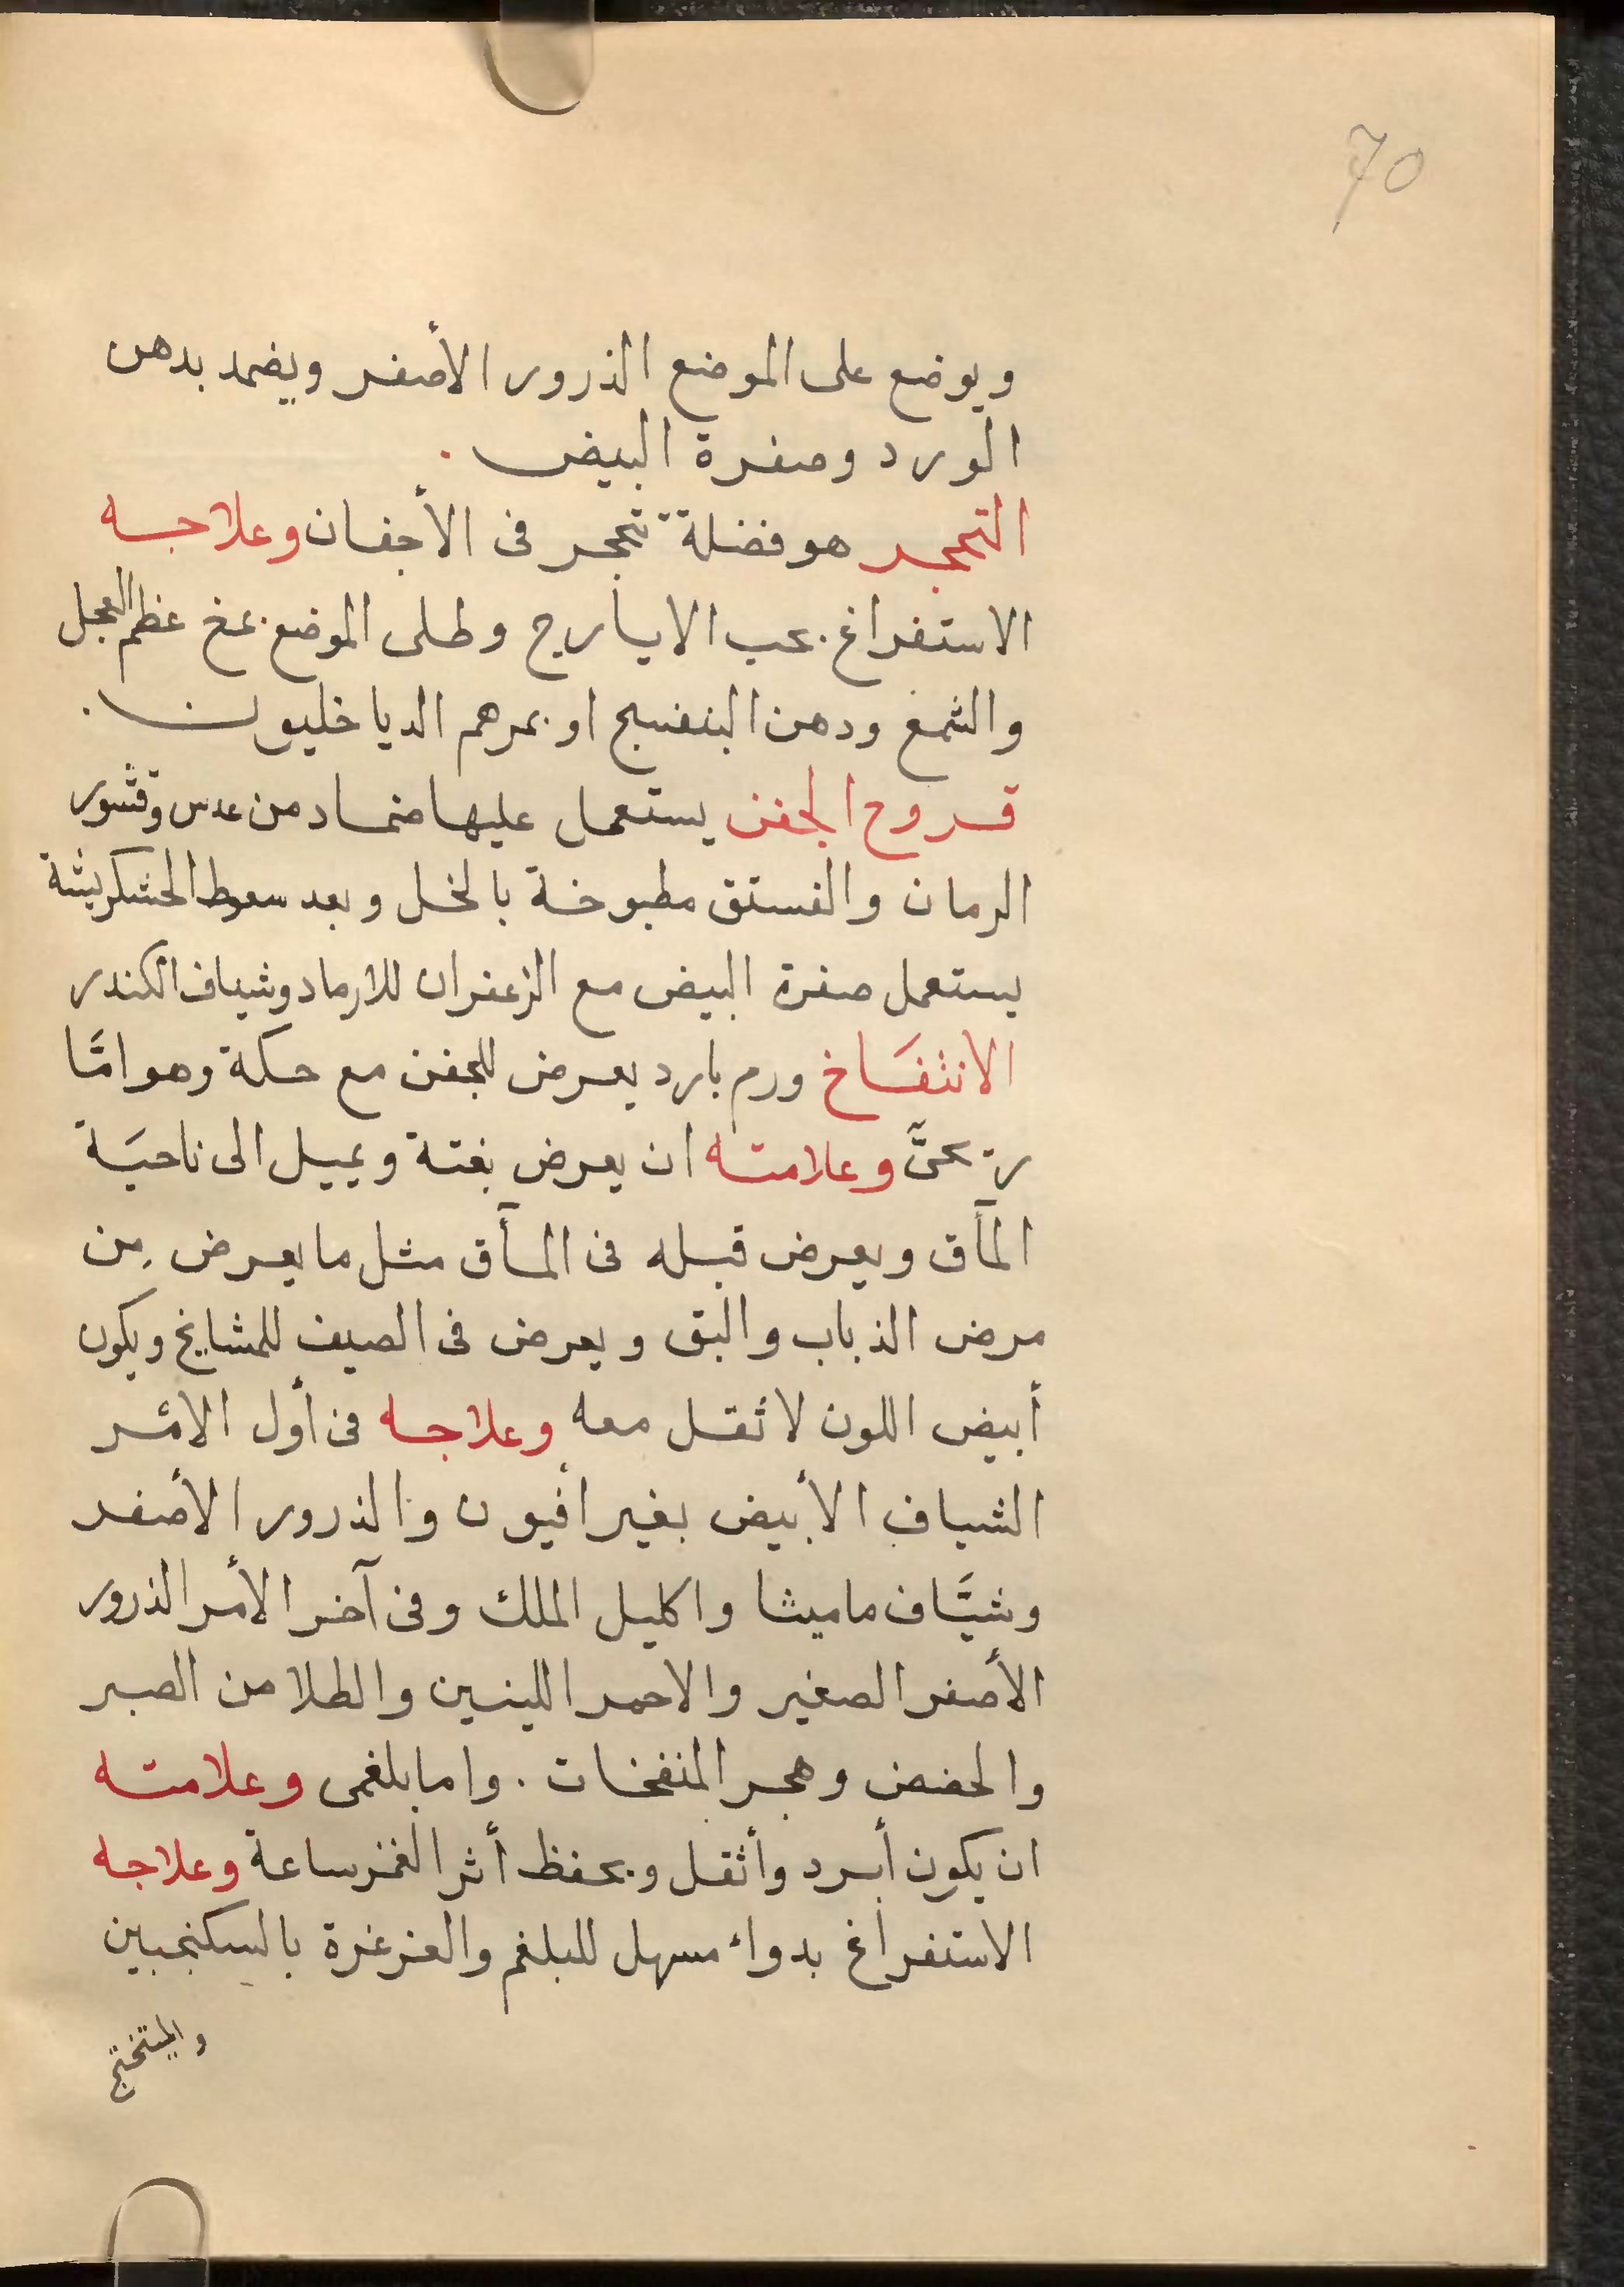 70
ويوضع على الموضع الذرور الأصفر ويضمد بدهن
الورد وصفرة البيض .
التحجر هو فضلة تتحجر فى الأجفان وعلاجه
الاستفراغ بحب الايارج وطلى الموضع بمخ عظم العجل
والشمع ودهن البنفسج او بمرهم الدياخليون .
قروح الجفن يستعمل عليها ضماد من عدس وقشور
الرمان والفستق مطبوخة بالخل وبعد سعوط الخشكريشة
يستعمل صفرة البيض مع الزعفران للارماد وشياف الكندر
الانتفَاخ ورم بارد يعرض للجفن مع حكة وهو امَّا
ريحىَّ وعلامته ان يعرض بغتة ويميل الى ناحيَة
المآق ويعرض قبله فى المآق مثل ما يعرض مِن
مرض الذباب والبق ويعرض فى الصيف للمشايخ ويكون
أبيض اللون لا ثقل معه وعلاجه فى أول الأمر
الشياف الأبيض بغير افيون والذرور الأصفر
وشيَّاف ماميثا واكليل الملك وفى آخر الأمر الذرور
الأصفر الصغير والاحمر اللينين والطلا من الصبر
والحضض وهجر المنفخات . واما بلغمى وعلامته
ان يكون أبرد وأثقل ويحفظ أثر الغمز ساعة وعلاجه
الاستفراغ بدواء مسهل للبلغم والغرغرة بالسكنجبين
والميتختج